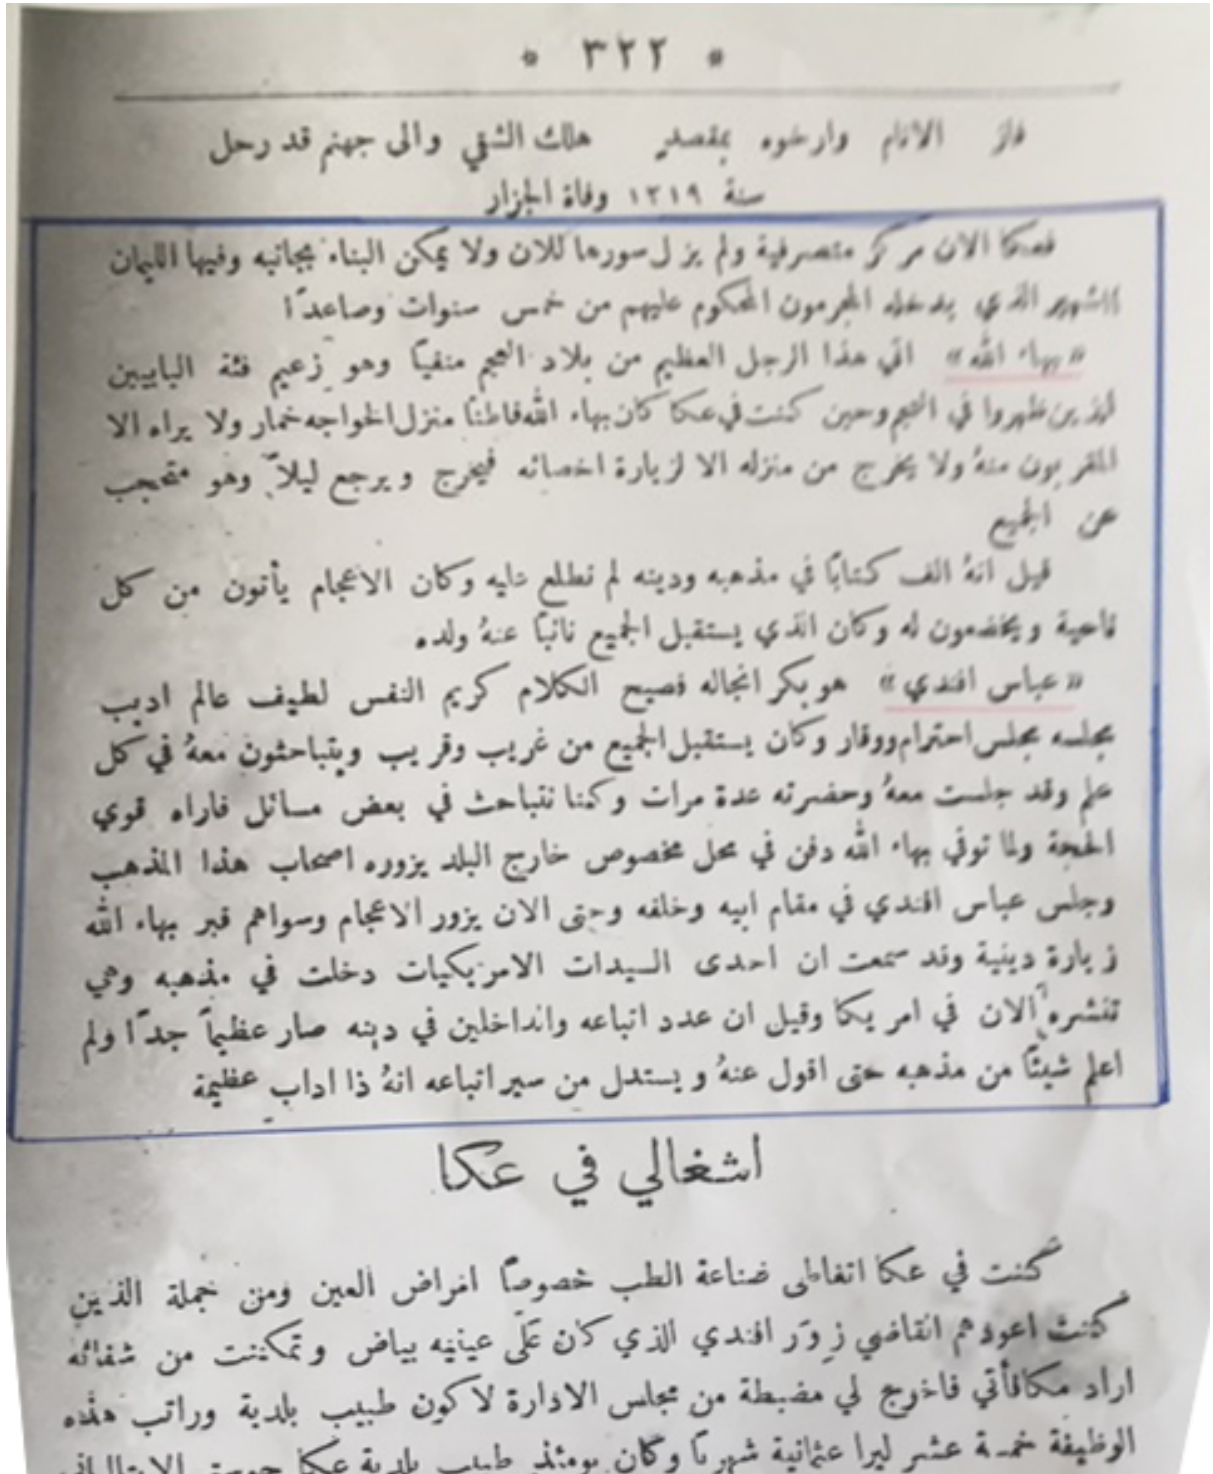 * ٣٢٢ *
فاز الانام وارخوه بمقصد هلك الشقي والى جهنم قد رحل
سنة ١٢١٩ وفاة الجزار
فعكا الان مركز متصرفية ولم يزل سورها للان ولا يمكن البناء بجانبه وفيها الليمان
الشهير الذي يدخله المجرمون المحكوم عليهم من خمس سنوات وصاعدًا
«بهاء الله» اتي هذا الرجل العظيم من بلاد العجم منفيًا وهو زعيم فئة البابيين
الذين ظهروا في العجم وحين كنت في عكا كان بهاء الله قاطنًا منزل الخواجه خمار ولا يراه الا
المقربون منهُ ولا يخرج من منزله الا لزيارة اخصائه فيخرج ويرجع ليلاً وهو متحجب
عن الجميع
قيل انهُ الف كتابًا في مذهبه ودينه لم نطلع عليه وكان الاعجام يأتون من كل
ناحية ويخضعون له وكان الذي يستقبل الجميع نائبًا عنهُ ولده
«عباس افندي» هو بكر انجاله فصيح الكلام كريم النفس لطيف عالم اديب
مجلسه مجلس احترام ووقار وكان يستقبل الجميع من غريب وقريب ويتباحثون معهُ في كل
علم وقد جلست معهُ وحضرته عدة مرات وكنا نتباحث في بعض مسائل فاراه قوي
الحجة ولما توفي بهاء الله دفن في محل مخصوص خارج البلد يزوره اصحاب هذا المذهب
وجلس عباس افندي في مقام ابيه وخلفه وحتى الان يزور الاعجام وسواهم قبر بهاء الله
زيارة دينية وقد سمعت ان احدى السيدات الامريكيات دخلت في مذهبه وهي
تنشره الان في امريكا وقيل ان عدد اتباعه والداخلين في دينه صار عظيماً جدًا ولم
اعلم شيئًا من مذهبه حتى اقول عنهُ ويستدل من سير اتباعه انهُ ذا اداب عظيمة
اشغالي في عكا
كنت في عكا اتعاطى صناعة الطب خصوصًا امراض العين ومن جملة الذين
كنت اعودهم القاضي زور افندي الذي كان على عينيه بياض وتمكنت من شفائه
اراد مكافأتي فاخرج لي مضبطة من مجلس الادارة لاكون طبيب بلدية وراتب هذه
الوظيفة خمسة عشر ليرا عثمانية شهريًا وكان يومئذ طبيب بلدية عكا